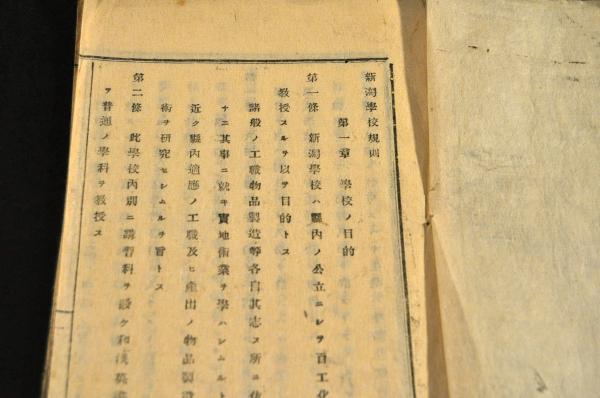 新潟學校規則
第一章 學校ノ目的
第一條 新潟學校ハ縣内ノ公立ニシテ百工化
教授スルヲ以テ目的トス
諸般ノ工職物品製造等各自其志ス所ニ
ナニ其事ニ就キ實地術業ヲ學ハシムルト
近ク縣内適應ノ工職及ヒ産出ノ物品製造
術ヲ研究セシムルヲ旨トス
第二條 此學校内別ニ講習科ヲ設ク和漢英
ヲ普通ノ學科ヲ教授ス